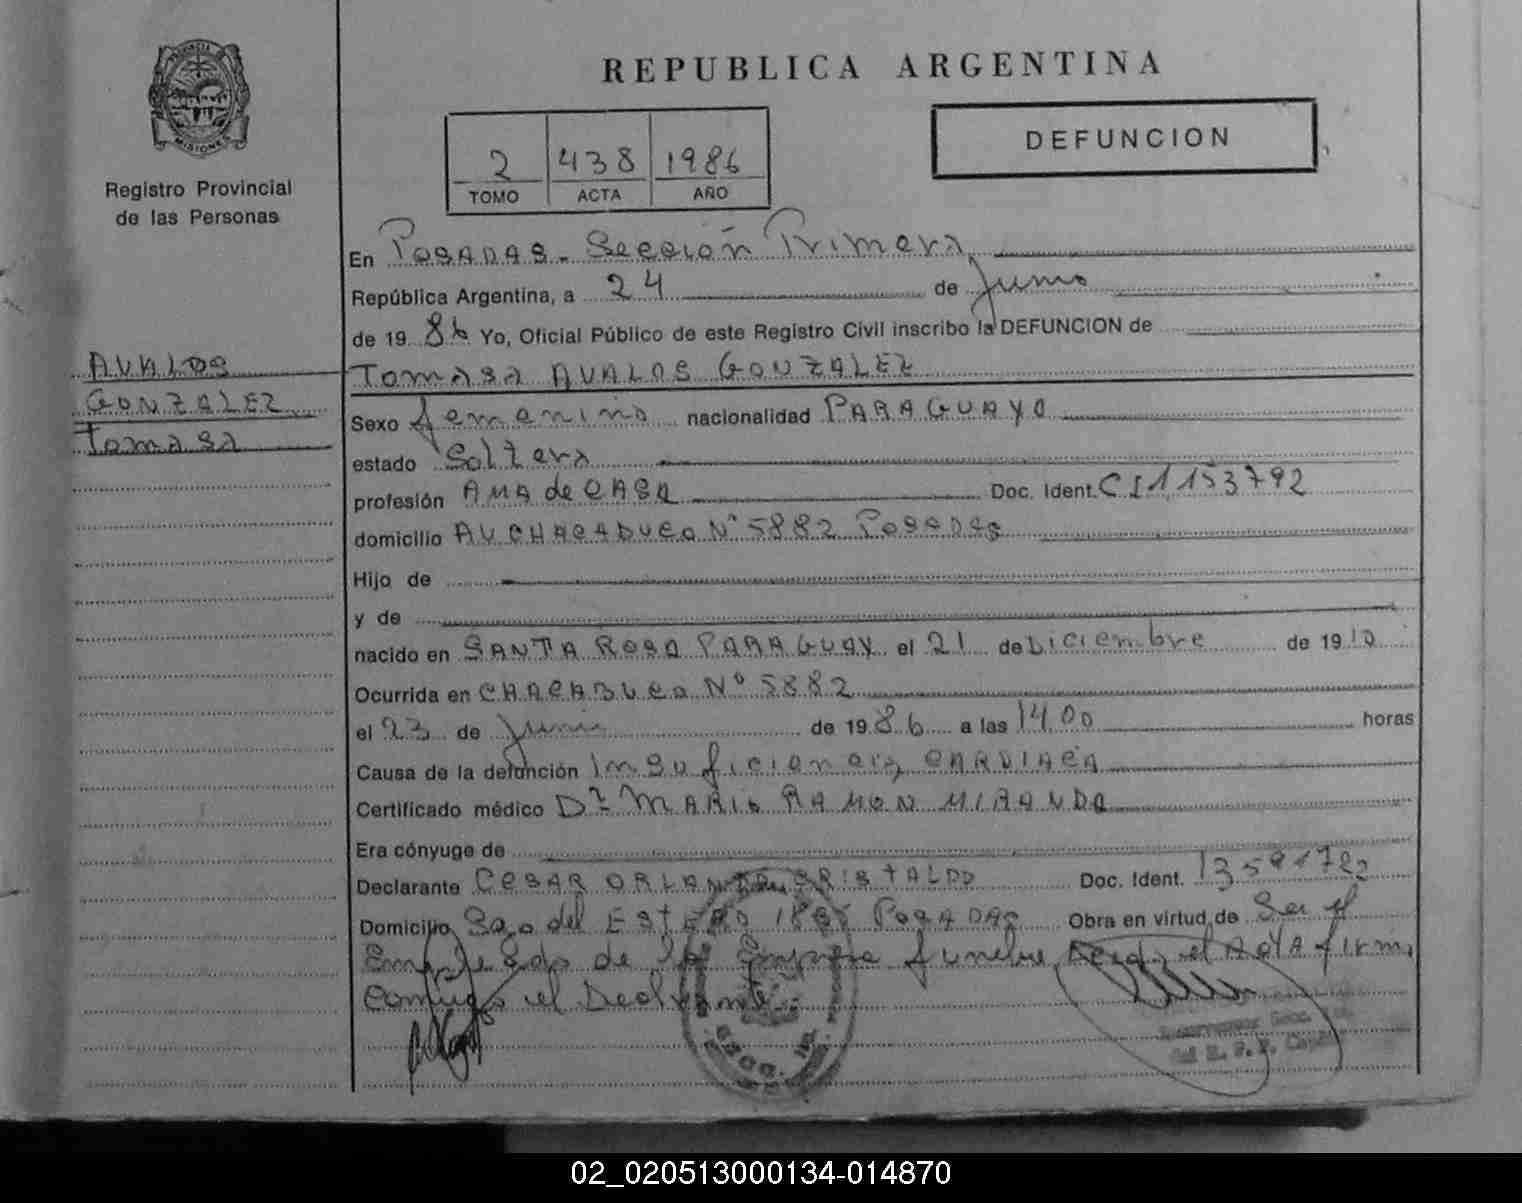 PROVINCIA DE
MISIONES
Registro Provincial
de las Personas
AVALOS
GONZALEZ
Tomasa
REPUBLICA ARGENTINA
2 438 1986
TOMO ACTA AÑO
DEFUNCION
En POSADAS - Sección Primera
República Argentina, a 24 de Junio
de 19 86 Yo, Oficial Público de este Registro Civil inscribo la DEFUNCION de
Tomasa AVALOS GONZALEZ
Sexo femenino nacionalidad PARAGUAYA
estado Soltera
profesión AMA de CASA Doc. Ident. CI 1153792
domicilio AV CHACABUCO Nº 5882 POSADAS
Hijo de
y de
nacido en SANTA ROSA PARAGUAY el 21 de Diciembre de 19 10
Ocurrida en CHACABUCO Nº 5882
el 23 de Junio de 19 86 a las 14,00 horas
Causa de la defunción Insuficiencia CARDIACA
Certificado médico Dr MARIO RAMON MIRANDA
Era cónyuge de
Declarante CESAR ORLANDO CRISTALDO Doc. Ident.
Domicilio Sgo del ESTERO POSADAS Obra en virtud de Ser el
Empleado de la Empresa funebre Leida el Acta firma
conmigo el Declarante
02_020513000134-014870